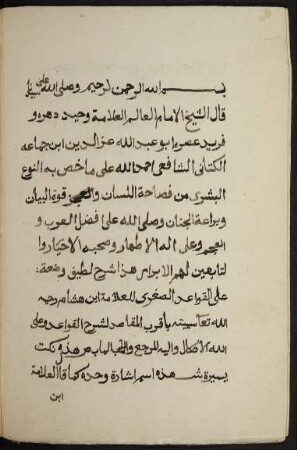 بسم الله الرحمن الرحيم وصلى الله على سيدنا
قال الشيخ الامام العالم العلامة وحيد دهره و
فريد عصره ابو عبد الله عز الدين ابن جماعه
الكنانى الشافعى احمد الله على ما خص به النوع
البشرى من فصاحة اللسان وقوة البيان
وبراعة الجنان وصلى الله على افضل العرب و
العجم وعلى اله الاطهار وصحبه الاخيار وا
لتابعين لهم الابرار هذا شرح لطيف وضعته
على القواعد الصغرى للعلامة ابن هشام رحمه
الله تعا سميته باقرب المقاصد لشرح القواعد وعلى
الله الاتكال واليه المرجع والماب هذه نكت
يسيرة هذه اسم اشارة وحده كما قال العلامة
ابن